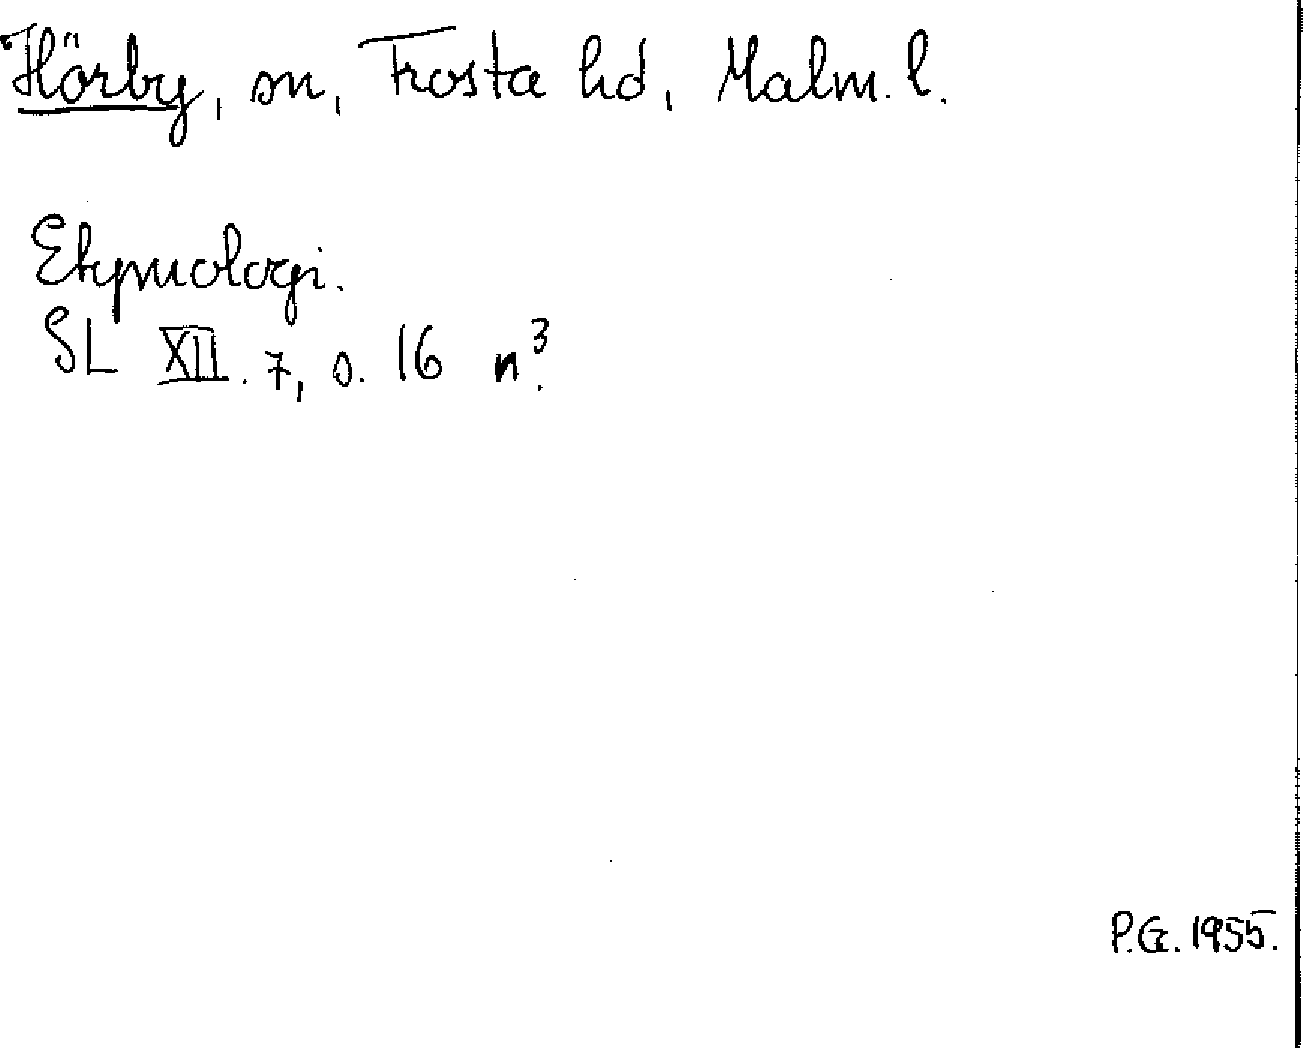 Hörby, sn, Frosta hd, Malm. l.
Etymologi.
SL XII. 7, s. 16 n³.
P.G. 1955.